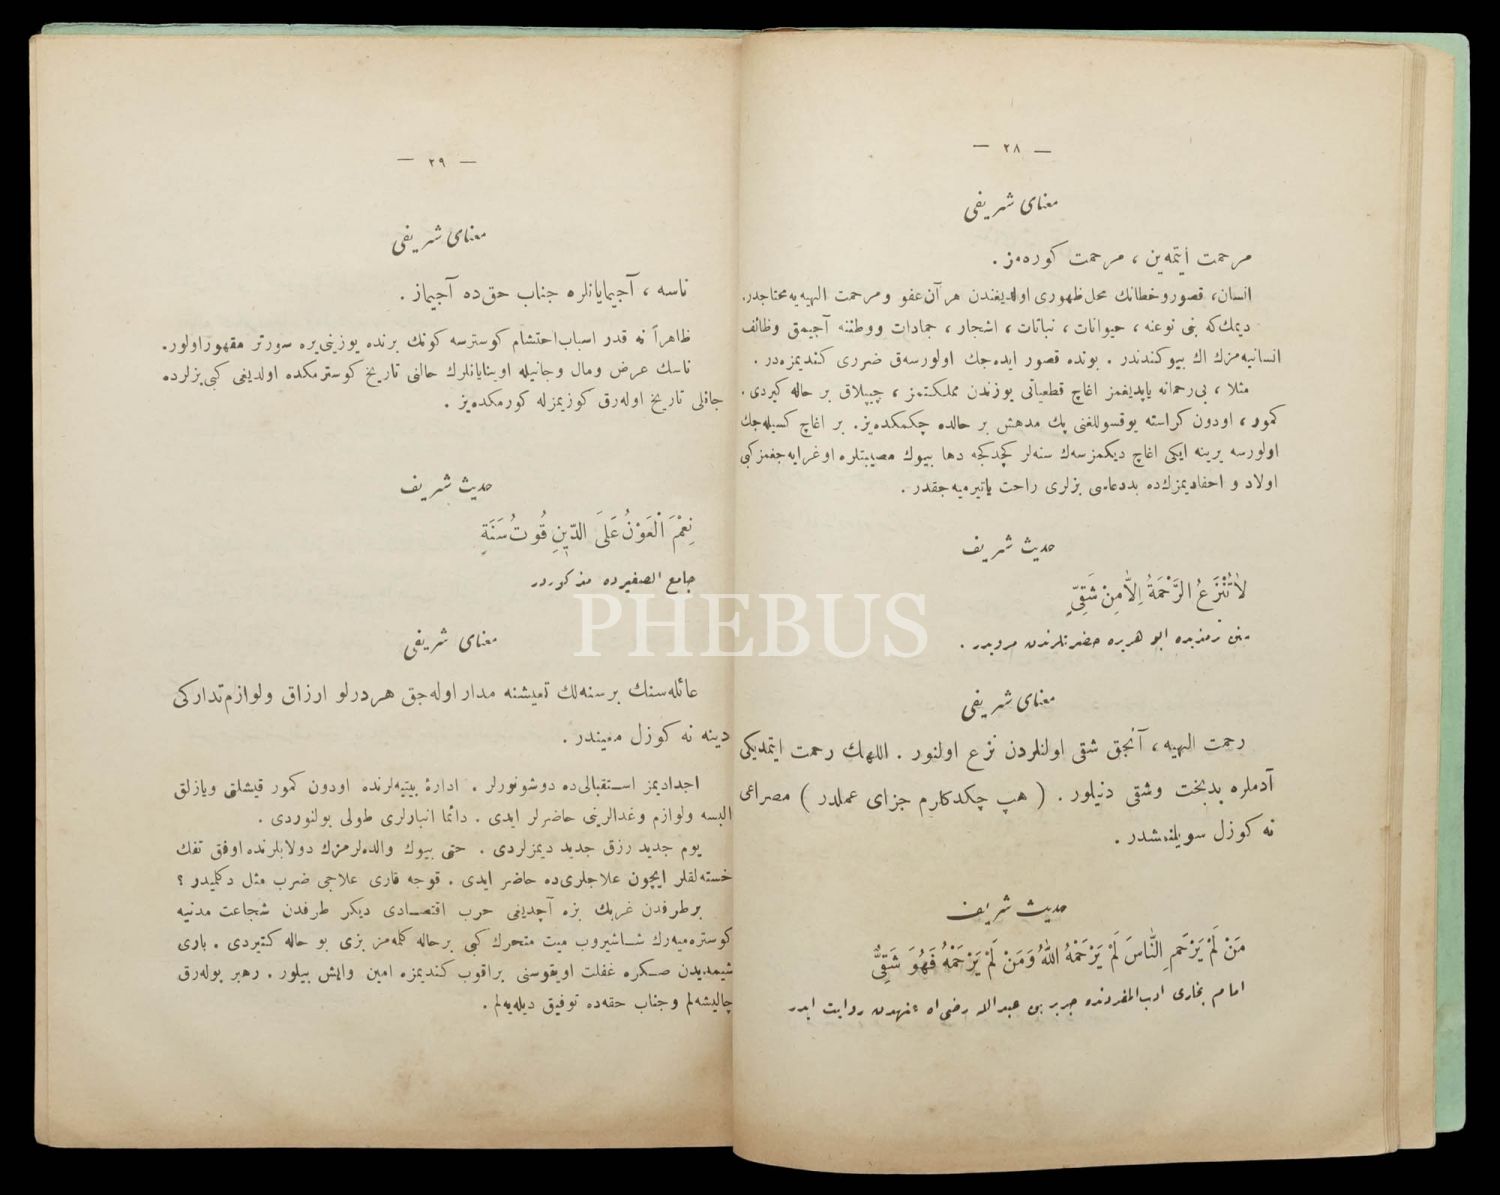 — ٢٨ —
معنای شریفی
مرحمت ایتمه‌ین ، مرحمت كوره‌مز .
انسان، قصور و خطانك محل ظهوری اولدیغندن هر آن عفو و مرحمت الهیه‌یه محتاجدر.
دیمك كه بنی نوعنه ، حیوانات ، نباتات ، اشجار ، جمادات ووطننه آجیمق وظائف
انسانیه‌مزك اك بیوكندندر . بونده قصور ایده‌جك اولورسه‌ق ضرری كندیمزه‌در .
مثلا ، بی‌رحمانه یاپدیغمز اغاچ قطعیاتی یوزندن مملكتمز ، چیپلاق بر حاله كیردی .
كمور ، اودون كراسته یوقسوللغنی پك مدهش بر حالده چكمكده‌یز. بر اغاچ كسیله‌جك
اولورسه یرینه ایكی اغاچ دیكمزسه‌ك سنه‌لر كچدكجه دها بیوك مصیبتلره اوغرایه‌جغمز كبی
اولاد و احفادیمزك‌ده بددعاسی بزلری راحت یاتیرمیه‌جقدر .
حدیث شریف
لَا تُنْزَعُ الرَّحْمَةُ اِلَّا مِنْ شَقِیٍّ
سنن ترمذیده ابو هریره حضرتلرندن مرویدر .
معنای شریفی
رحمت الهیه ، آنجق شقی اولنلردن نزع اولنور . اللهك رحمت ایتمدیكی
آدملره بدبخت وشقی دنیلور . ( هپ چكدكارم جزای عملدر ) مصراعی
نه كوزل سویلنمشدر .
حدیث شریف
مَنْ لَمْ یَرْحَمِ النَّاسَ لَمْ یَرْحَمْهُ اللّٰهُ وَمَنْ لَمْ یَرْحَمْهُ فَهُوَ شَقِیٌّ
امام بخاری ادب المفردنده جریر بن عبدالله رضی‌اه عنهدن روایت ایدر
— ٢٩ —
معنای شریفی
ناسه ، آجیمایانلره جناب حق‌ده آجیماز .
ظاهراً نه قدر اسباب احتشام كوسترسه كونك برنده یوزینی‌یره سورتر مقهور اولور.
ناسك عرض ومال وجانیله اوینایانلرك حالنی تاریخ كوسترمكده اولدیغی كبی بزلرده
جانلی تاریخ اوله‌رق كوزیمزله كورمكده‌یز .
حدیث شریف
نِعْمَ الْعَوْنُ عَلَی الدِّینِ قُوتُ سَنَةٍ
جامع الصغیرده مذكوردر
معنای شریفی
عائله‌سنك برسنه‌لك تعیشنه مدار اوله‌جق هردرلو ارزاق ولوازم تداركی
دینه نه كوزل معیندر .
اجدادیمز استقبالی‌ده دوشونورلر . ادارهٔ بیتیه‌لرنده اودون كمور قیشلق ویازلق
البسه ولوازم وغدالرینی حاضرلر ایدی . دائما انبارلری طولی بولنوردی .
یوم جدید رزق جدید دیمزلردی . حتی بیوك والده‌لرمزك دولابلرنده اوفق تفك
خسته‌لقلر ایچون علاجلری‌ده حاضر ایدی . قوجه قاری علاجی ضرب مثل دكلمیدر ؟
برطرفدن غربك بزه آچدیغی حرب اقتصادی دیكر طرفدن شجاعت مدنیه
كوستره‌میه‌رك شاشیروب میت متحرك كبی برحاله كلمه‌مز بزی بو حاله كتیردی . باری
شیمدیدن صكره غفلت اویقوسنی براقوب كندیمزه امین وایش بیلور . رهبر بوله‌رق
چالیشه‌لم وجناب حقه‌ده توفیق دیله‌یه‌لم .
PHEBUS